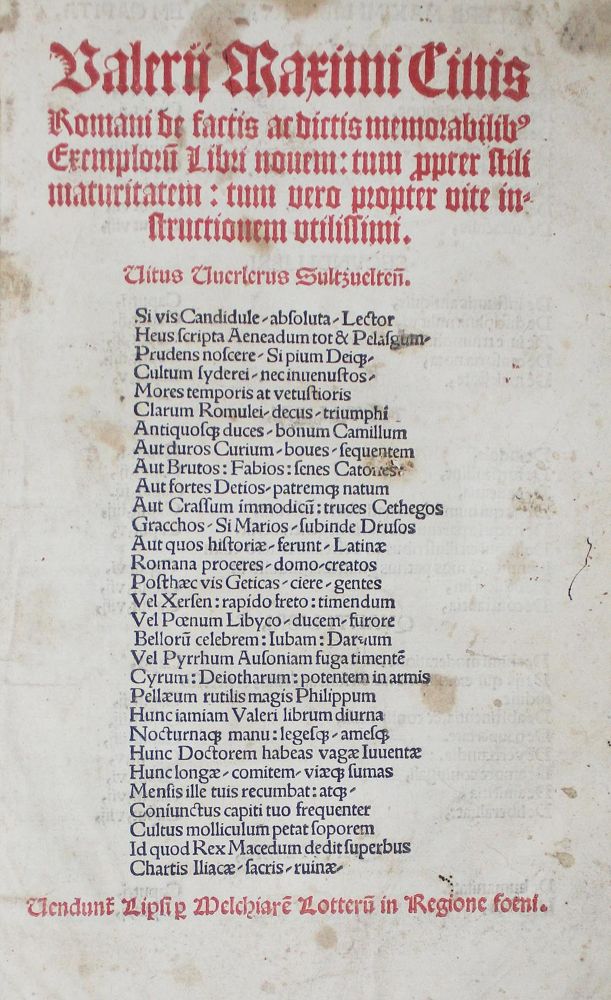 Valerij Maximi Ciuis
Romani de factis ac dictis memorabilibꝰ
Exemplorū Libri nouem: tum ꝓpter stili
maturitatem: tum vero propter vite in⸗
structionem vtilissimi.
Vitus Vuerlerus Sultzueltenn̄.
Si vis Candidule⸗absoluta⸗Lector
Heus scripta Aeneadum tot & Pelasgum⸗
Prudens noscere⸗Si pium Deiqꝫ⸗
Cultum syderei⸗nec inuenustos⸗
Mores temporis at vetustioris
Clarum Romulei⸗decus⸗triumphi
Antiquosqꝫ duces⸗bonum Camillum
Aut duros Curium⸗boues⸗sequentem
Aut Brutos: Fabios: senes Catones:
Aut fortes Detios⸗patremqꝫ natum
Aut Crassum immodicū: truces Cethegos
Gracchos⸗Si Marios⸗subinde Drusos
Aut quos historiæ⸗ferunt⸗Latinæ
Romana proceres⸗domo⸗creatos
Posthæc vis Geticas⸗ciere⸗gentes
Vel Xersen: rapido freto: timendum
Vel Pœnum Libyco⸗ducem⸗furore
Bellorū celebrem: Iubam: Darium
Vel Pyrrhum Ausoniam fuga timentē
Cyrum: Deiotharum: potentem in armis
Pellæum rutilis magis Philippum
Hunc iamiam Valeri librum diurna
Nocturnaqꝫ manu: legesqꝫ⸗amesqꝫ
Hunc Doctorem habeas vagæ Iuuentæ
Hunc longæ⸗comitem⸗viæqꝫ sumas
Mensis ille tuis recumbat: atqꝫ⸗
Coniunctus capiti tuo frequenter
Cultus molliculum petat soporem
Id quod Rex Macedum dedit superbus
Chartis Iliacæ⸗sacris⸗ruinæ⸗
Uendunt᷑ Lipsi ꝑ Melchiarē Lotterū in Regione foeni.